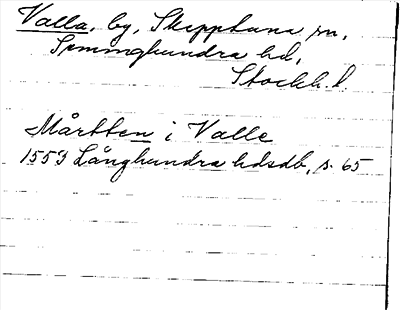 Valla, by, Skepptuna sn,
Seminghundra hd,
Stockh. l.
Mårtten i Valle
1553 Långhundra hdsdb, s. 65